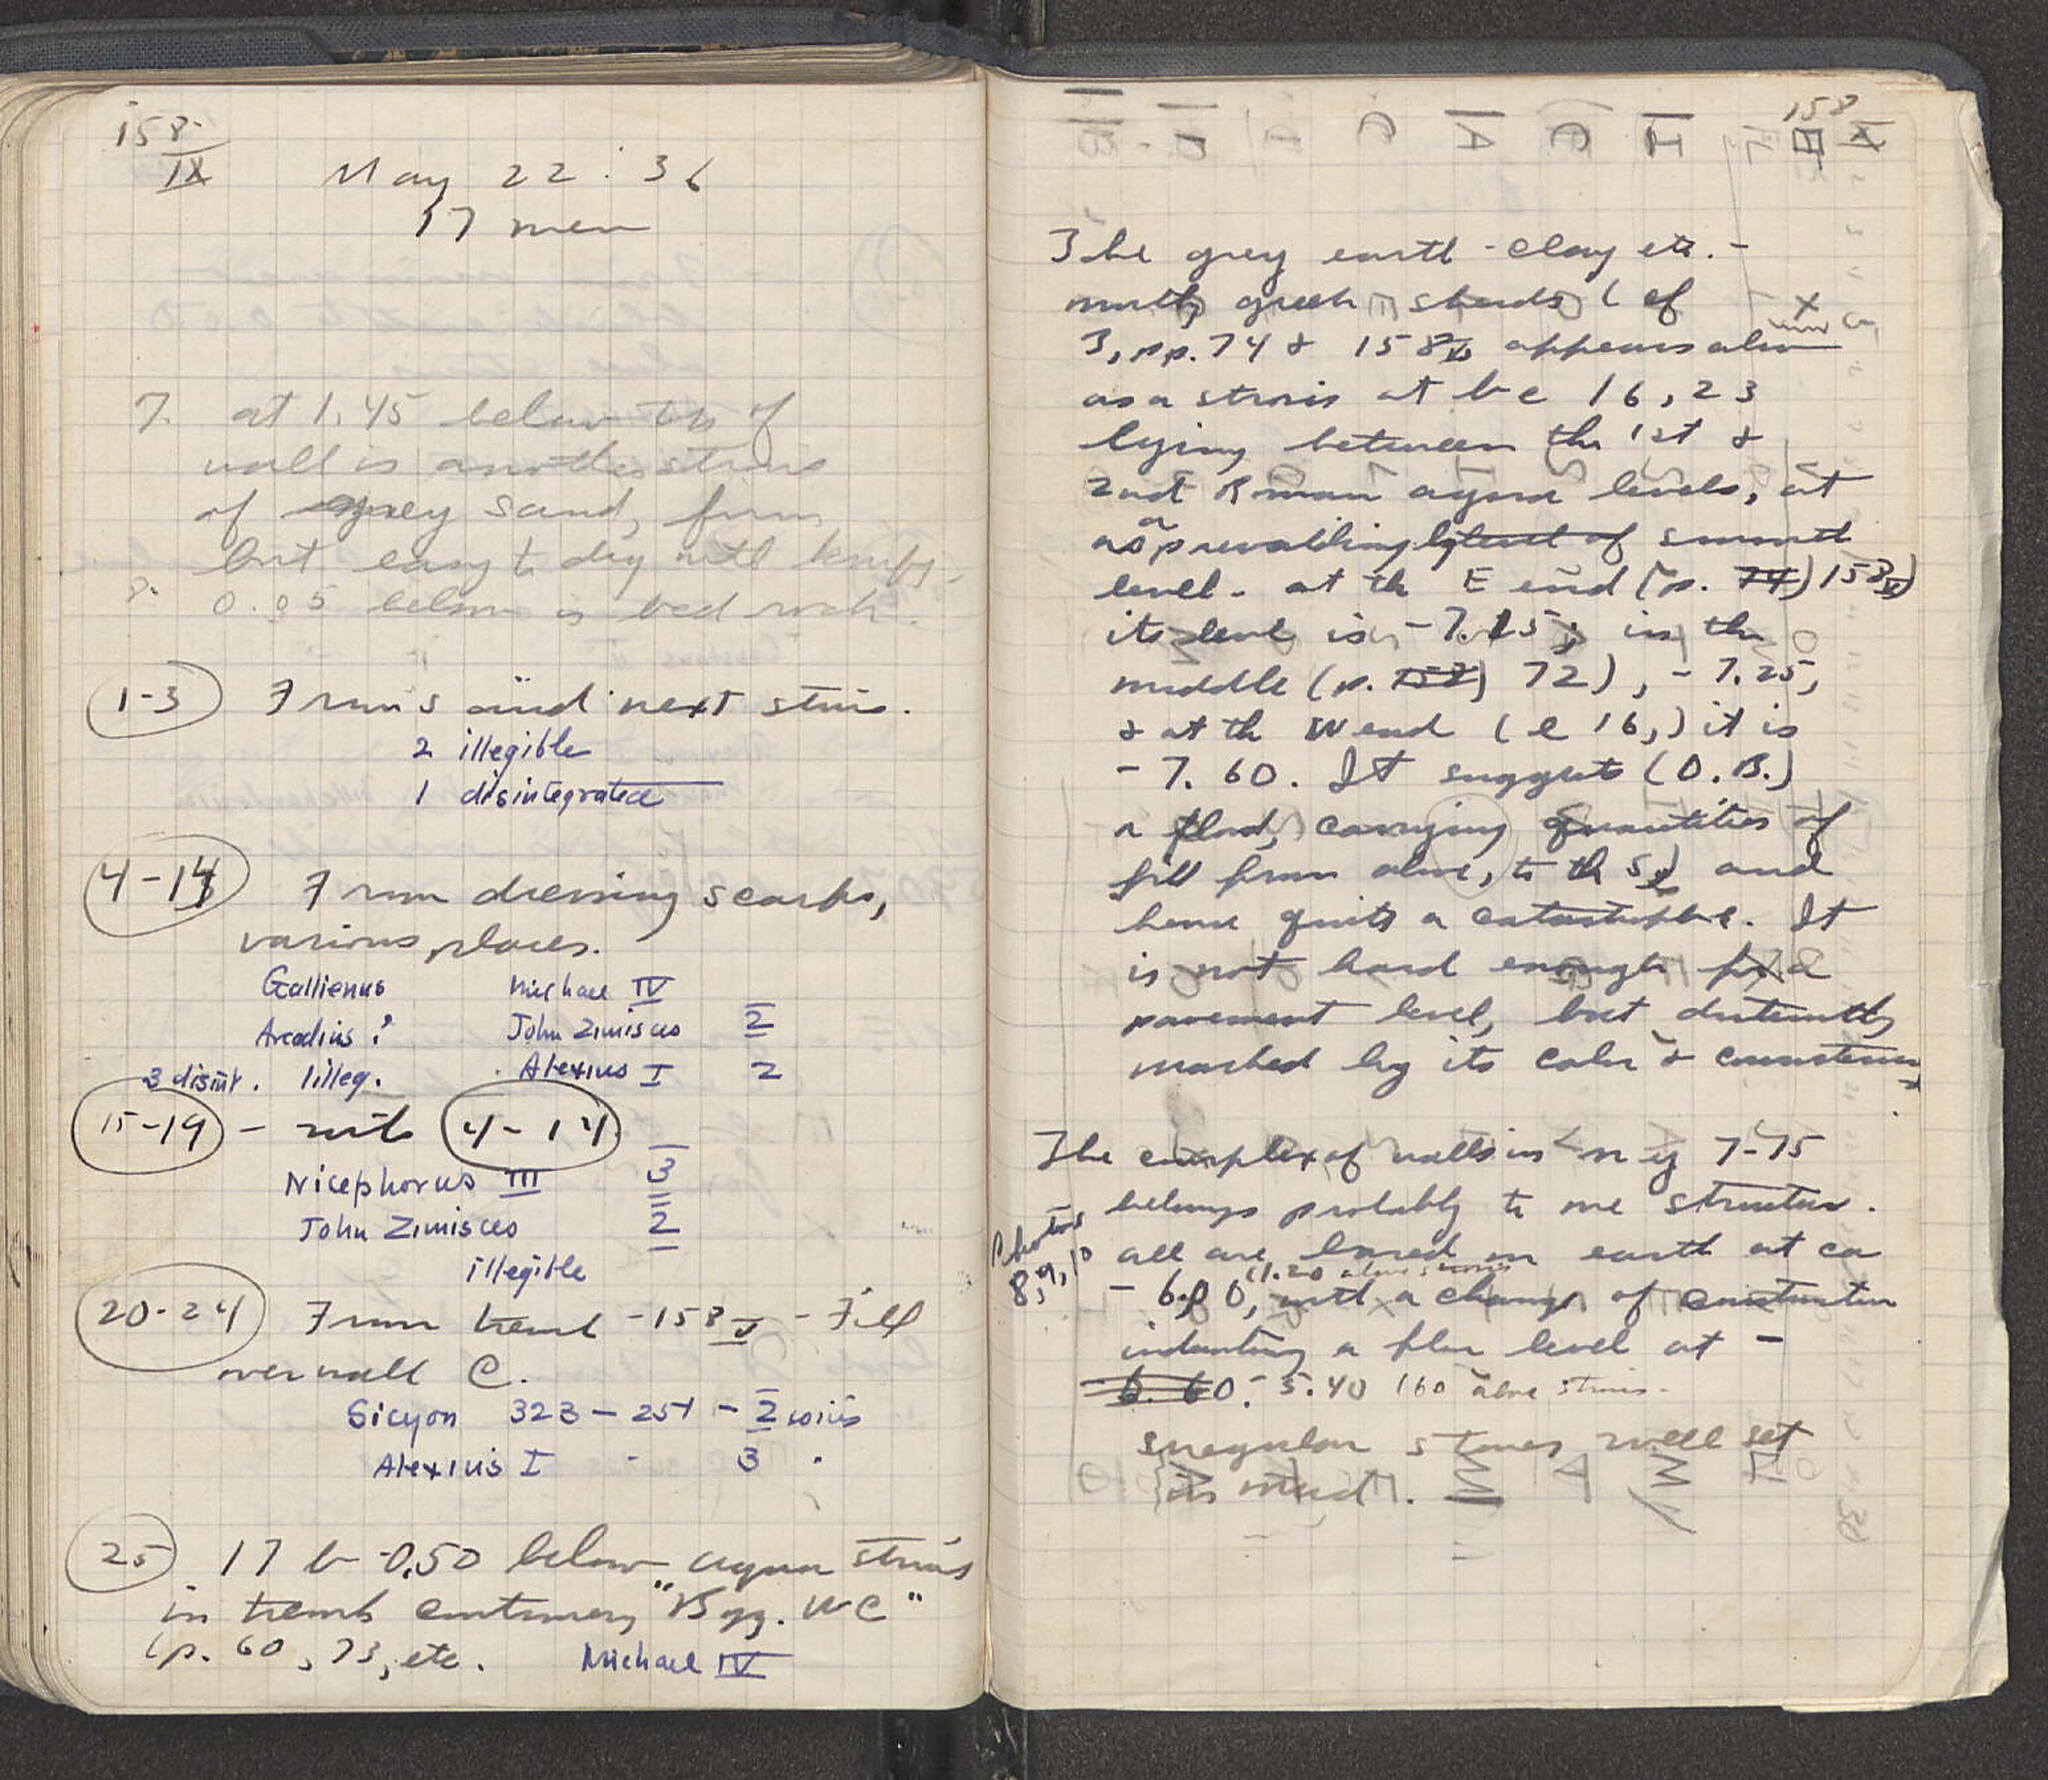 158
IX
May 22 : 36
17 men
7. at 1.45 below top of
wall is another strosis
of grey sand, firm
but easy to dig with knife.
8. 0.05 below is bed rock.
1-3 From S and next strosis.
2 illegible
1 disintegrated
4-14 From dressing scarps,
various places.
Gallienus Michael IV
Arcadius? John Zimisces 2
3 disint. 1 illeg. Alexius I 2
15-19 - with 4-14
Nicephorus III 3
John Zimisces 2
illegible
20-24 From trench - 158 V - Fill
over wall C.
Sicyon 323 - 251 - 2 coins
Alexius I - 3 "
25 17 b -0.50 below agora strosis
in trench continuing "Byz. WC"
(p. 60, 73, etc. Michael IV
158
X
The grey earth - clay etc. -
mostly greek sherds (cf
3, pp. 74 & 158 appears also
as a strosis at b-e 16, 23
lying between the 1st &
2nd Roman agora levels, at
a prevailingly level of smooth
level. at the E end (p. 74) 158
its level is -7.15, in the
middle (p. 152) 72), -7.25,
& at the W end (e 16,) it is
-7.60. It suggests (O.B.)
a flood, carrying quantities of
fill from above, to the S, and
hence quite a catastrophe. It
is not hard enough for a
pavement level, but distinctly
marked by its color & consistency
The complex of walls in 7-15
belongs probably to one structure.
Photos
8, 9, 10
all are based on earth at ca
(1.20 above strosis
- 6.00, with a change of construction
indicating a floor level at -
6.60. - 5.40 160 above strosis.
irregular stones well set
in mud.